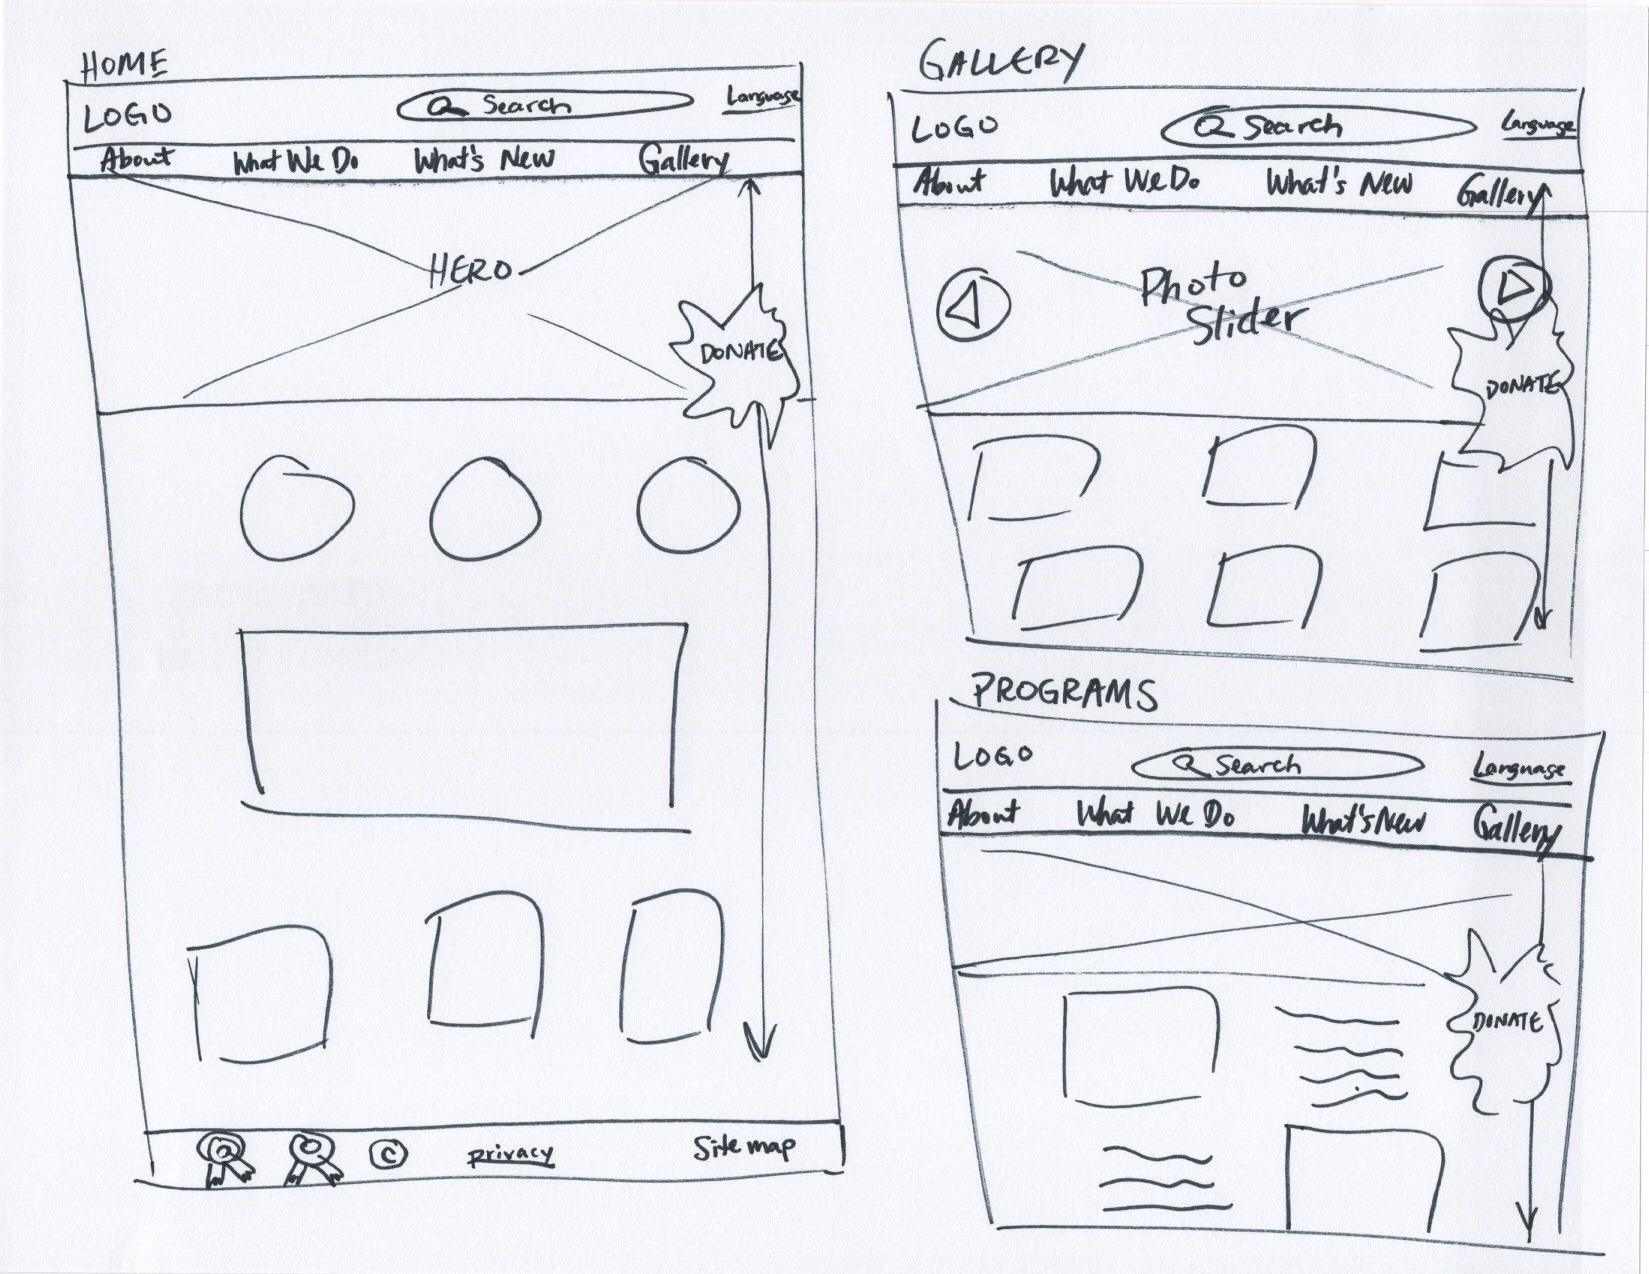 HOME
LOGO
Search
Language
About What We Do What's New Gallery
HERO
DONATE
© privacy Site map
GALLERY
LOGO
Search
Language
About What We Do What's New Gallery
Photo
Slider
DONATE
PROGRAMS
LOGO
Search
Language
About What We Do What's New Gallery
DONATE